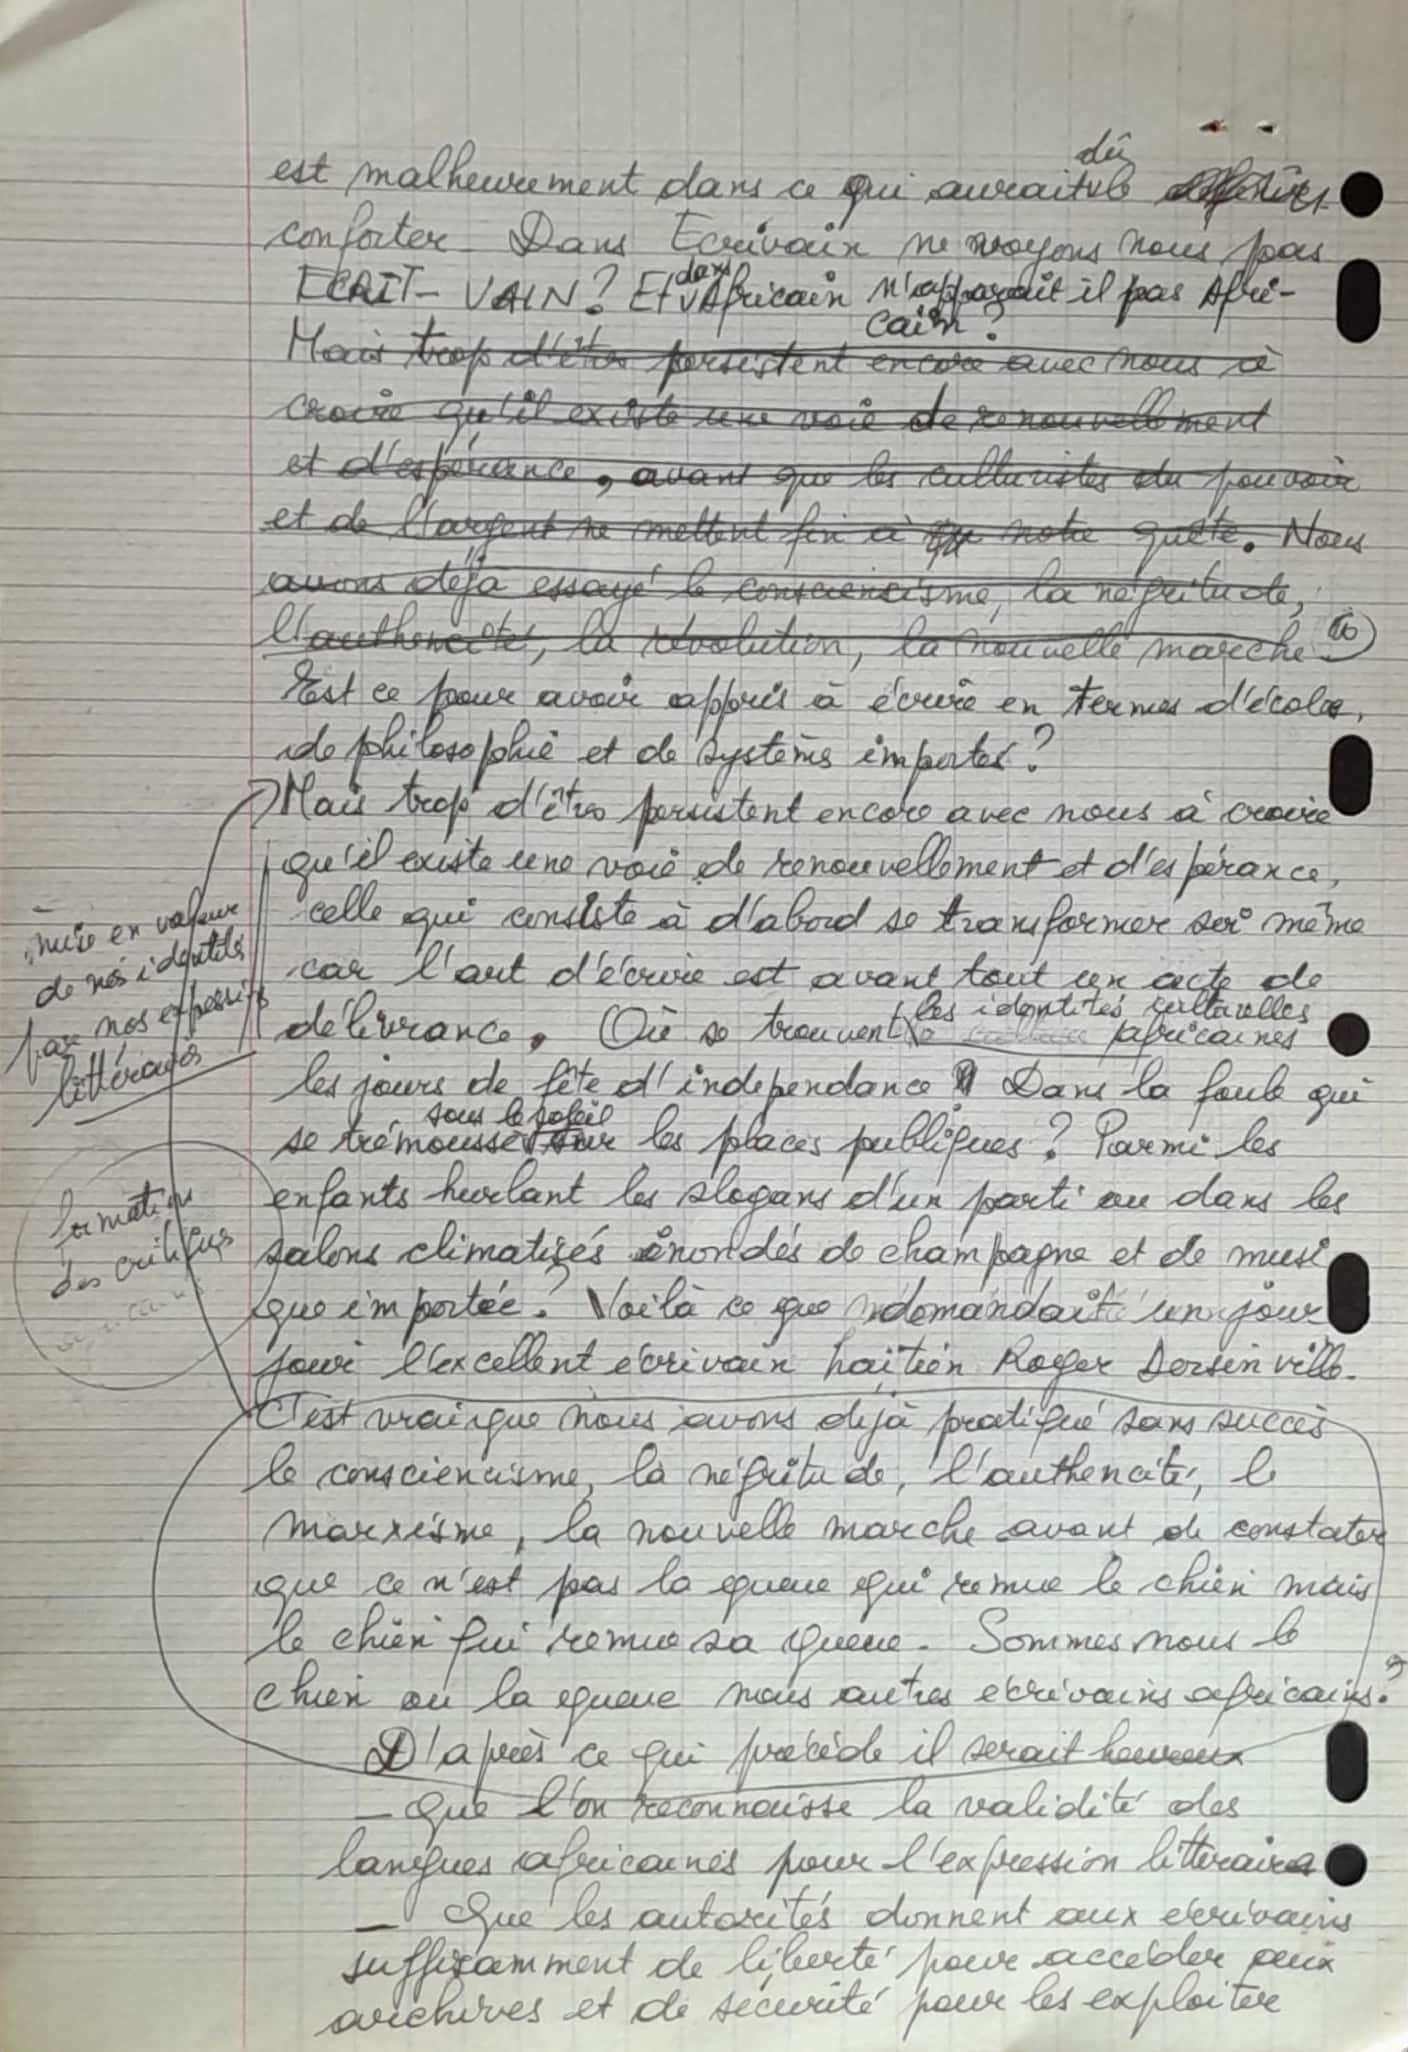 est malheurement dans ce qui aurait dû le
conforter. Dans Ecrivain ne voyons nous pas
ECRIT-VAIN? Et dans Africain n'apparait il pas Afri-
cain?
Mais trop d'êtres persistent encore avec nous à
croire qu'il existe une voie de renouvellement
et d'espérance, avant que les culturistes du pouvoir
et de l'argent ne mettent fin à notre quête. Nous
avons déjà essayé le consciencisme, la négritude,
l'authencité, la révolution, la nouvelle marche.
Est ce pour avoir appris à écrire en termes d'écoles,
de philosophie et de systèms importés?
Mais trop d'êtres persistent encore avec nous à croire
qu'il existe une voie de renouvellement et d'espérance,
celle qui consiste à d'abord se transformer soi même
car l'art d'écrire est avant tout un acte de
délivrance. Où se trouvent les identités culturelles africaines
les jours de fête d'independance? Dans la foule qui
se trémousse sous le soleil sur les places publiques? Parmi les
enfants hurlant les slogans d'un parti ou dans les
salons climatisés inondés de champagne et de musi
que importée? Voilà ce que demandait un jour
pour l'excellent écrivain haïtien Roger Dorsinville.
C'est vrai que nous avons déjà pratiqué sans succès
le consciencisme, la négritude, l'authencité, le
marxisme, la nouvelle marche avant de constater
que ce n'est pas la queue qui remue le chien mais
le chien qui remue sa queue. Sommes nous le
chien ou la queue nous autres écrivains africains?
D'après ce qui précède il serait heureux
- Que l'on reconnaisse la validité des
langues africaines pour l'expression littéraire
- Que les autorités donnent aux écrivains
suffisamment de liberté pour accéder aux
archives et de sécurité pour les exploiter
mise en valeur
de nos identités
par nos expressions
littéraires
formation
des critiques